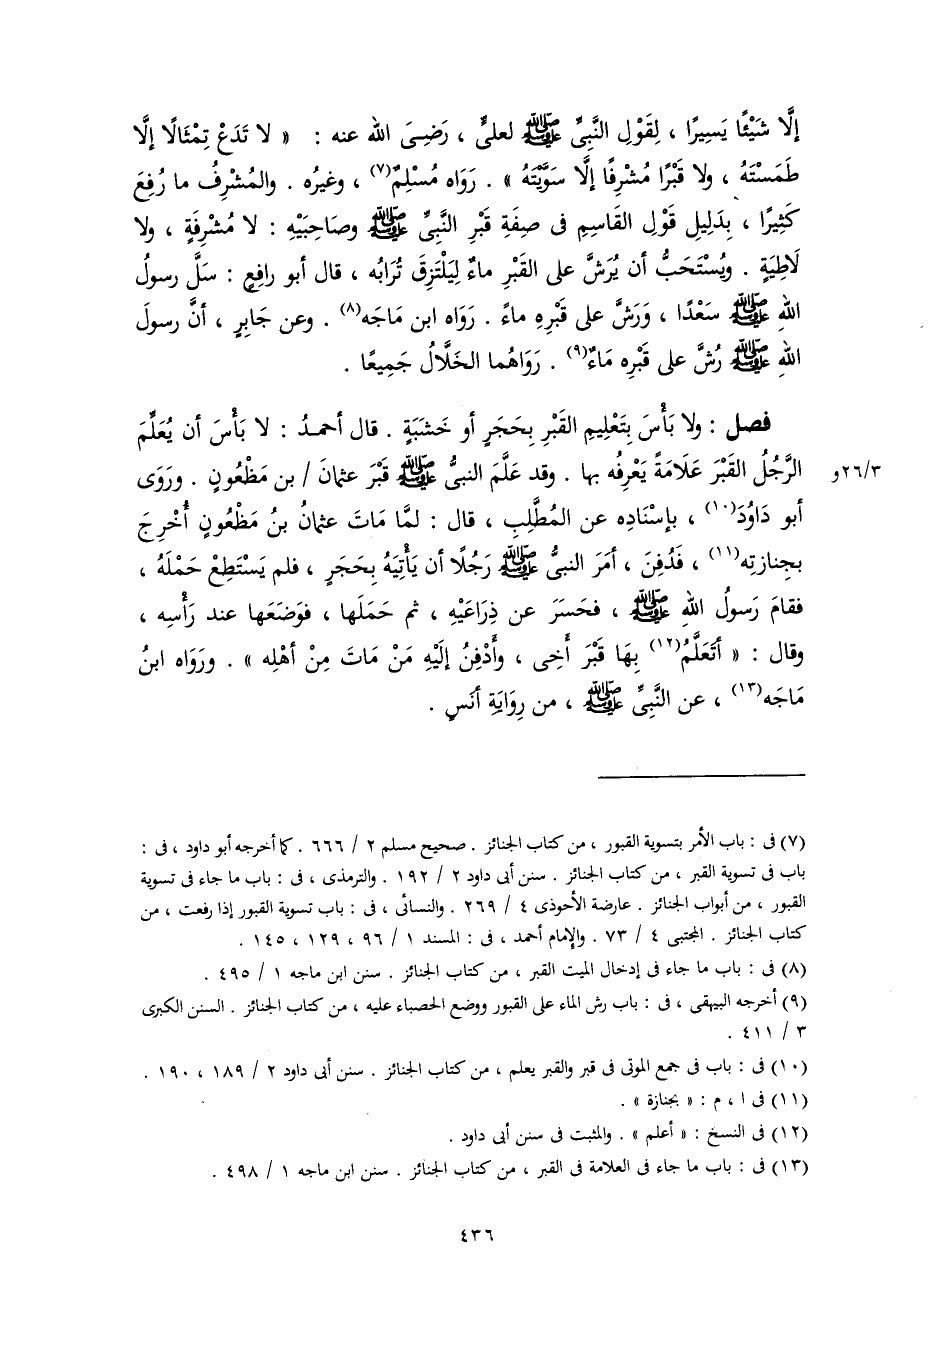 إلَّا شَيْئًا يَسِيرًا ، لِقَوْلِ النَّبِىِّ ﷺ لعلىٍّ ، رَضِىَ الله عنه : « لا تَدَعْ تِمْثَالًا إلَّا
طَمَسْتَهُ ، ولا قَبْرًا مُشْرِفًا إلَّا سَوَّيْتَهُ » . رَوَاه مُسْلِمٌ(٧) ، وغيرُه . والمُشْرِفُ ما رُفِعَ
كَثِيرًا ، بِدَلِيلِ قَوْلِ القَاسِمِ فى صِفَةِ قَبْرِ النَّبِىِّ ﷺ وصَاحِبَيْهِ : لا مُشْرِفَةٍ ، ولا
لَاطِيَةٍ . ويُسْتَحَبُّ أن يُرَشَّ على القَبْرِ ماءٌ لِيَلْتَزِقَ تُرَابُه ، قال أبو رافِعٍ : سَلَّ رسولُ
اللهِ ﷺ سَعْدًا ، وَرَشَّ على قَبْرِهِ ماءً . رَوَاه ابن مَاجَه(٨) . وعن جَابِرٍ ، أنَّ رسولَ
اللهِ ﷺ رُشَّ على قَبْرِه مَاءٌ(٩) . رَوَاهُما الخَلَّالُ جَمِيعًا .
فصل : ولا بَأْسَ بِتَعْلِيمِ القَبْرِ بِحَجَرٍ أو خَشَبَةٍ . قال أحمدُ : لا بَأْسَ أن يُعَلِّمَ
الرَّجُلُ القَبْرَ عَلَامَةً يَعْرِفُه بها . وقد عَلَّمَ النبىُّ ﷺ قَبْرَ عثمانَ / بن مَظْعُونٍ . ورَوَى
٢٦/٣و
أبو دَاوُدَ(١٠) ، بإسْنَادِه عن المُطَّلِبِ ، قال : لمَّا مَاتَ عثمانُ بنُ مَظْعُونٍ أُخْرِجَ
بِجِنازتِه(١١) ، فَدُفِنَ ، أمَرَ النبىُّ ﷺ رَجُلًا أن يَأْتِيَهُ بِحَجَرٍ ، فلم يَسْتَطِعْ حَمْلَهُ ،
فقامَ رَسولُ اللهِ ﷺ ، فحَسَرَ عن ذِرَاعَيْهِ ، ثم حَمَلَها ، فوَضَعَها عند رَأْسِه ،
وقال : « أتَعَلَّمُ(١٢) بِهَا قَبْرَ أَخِى ، وأَدْفِنُ إلَيْهِ مَنْ مَاتَ مِنْ أهْلِه » . ورَوَاه ابنُ
مَاجَه(١٣) ، عن النَّبِىِّ ﷺ ، من رِوَايَةِ أنَسٍ .
(٧) فى : باب الأمر بتسوية القبور ، من كتاب الجنائز . صحيح مسلم ٢ / ٦٦٦ . كما أخرجه أبو داود ، فى :
باب فى تسوية القبر ، من كتاب الجنائز . سنن أبى داود ٢ / ١٩٢ . والترمذى ، فى : باب ما جاء فى تسوية
القبور ، من أبواب الجنائز . عارضة الأحوذى ٤ / ٢٦٩ . والنسائى ، فى : باب تسوية القبور إذا رفعت ، من
كتاب الجنائز . المجتبى ٤ / ٧٣ . والإمام أحمد ، فى : المسند ١ / ٩٦ ، ١٢٩ ، ١٤٥ .
(٨) فى : باب ما جاء فى إدخال الميت القبر ، من كتاب الجنائز . سنن ابن ماجه ١ / ٤٩٥ .
(٩) أخرجه البيهقى ، فى : باب رش الماء على القبور ووضع الحصباء عليه ، من كتاب الجنائز . السنن الكبرى
٣ / ٤١١ .
(١٠) فى : باب فى جمع الموتى فى قبر والقبر يعلم ، من كتاب الجنائز . سنن أبى داود ٢ / ١٨٩ ، ١٩٠ .
(١١) فى ا ، م : « بجنازة » .
(١٢) فى النسخ : « أعلم » . والمثبت فى سنن أبى داود .
(١٣) فى : باب ما جاء فى العلامة فى القبر ، من كتاب الجنائز . سنن ابن ماجه ١ / ٤٩٨ .
٤٣٦